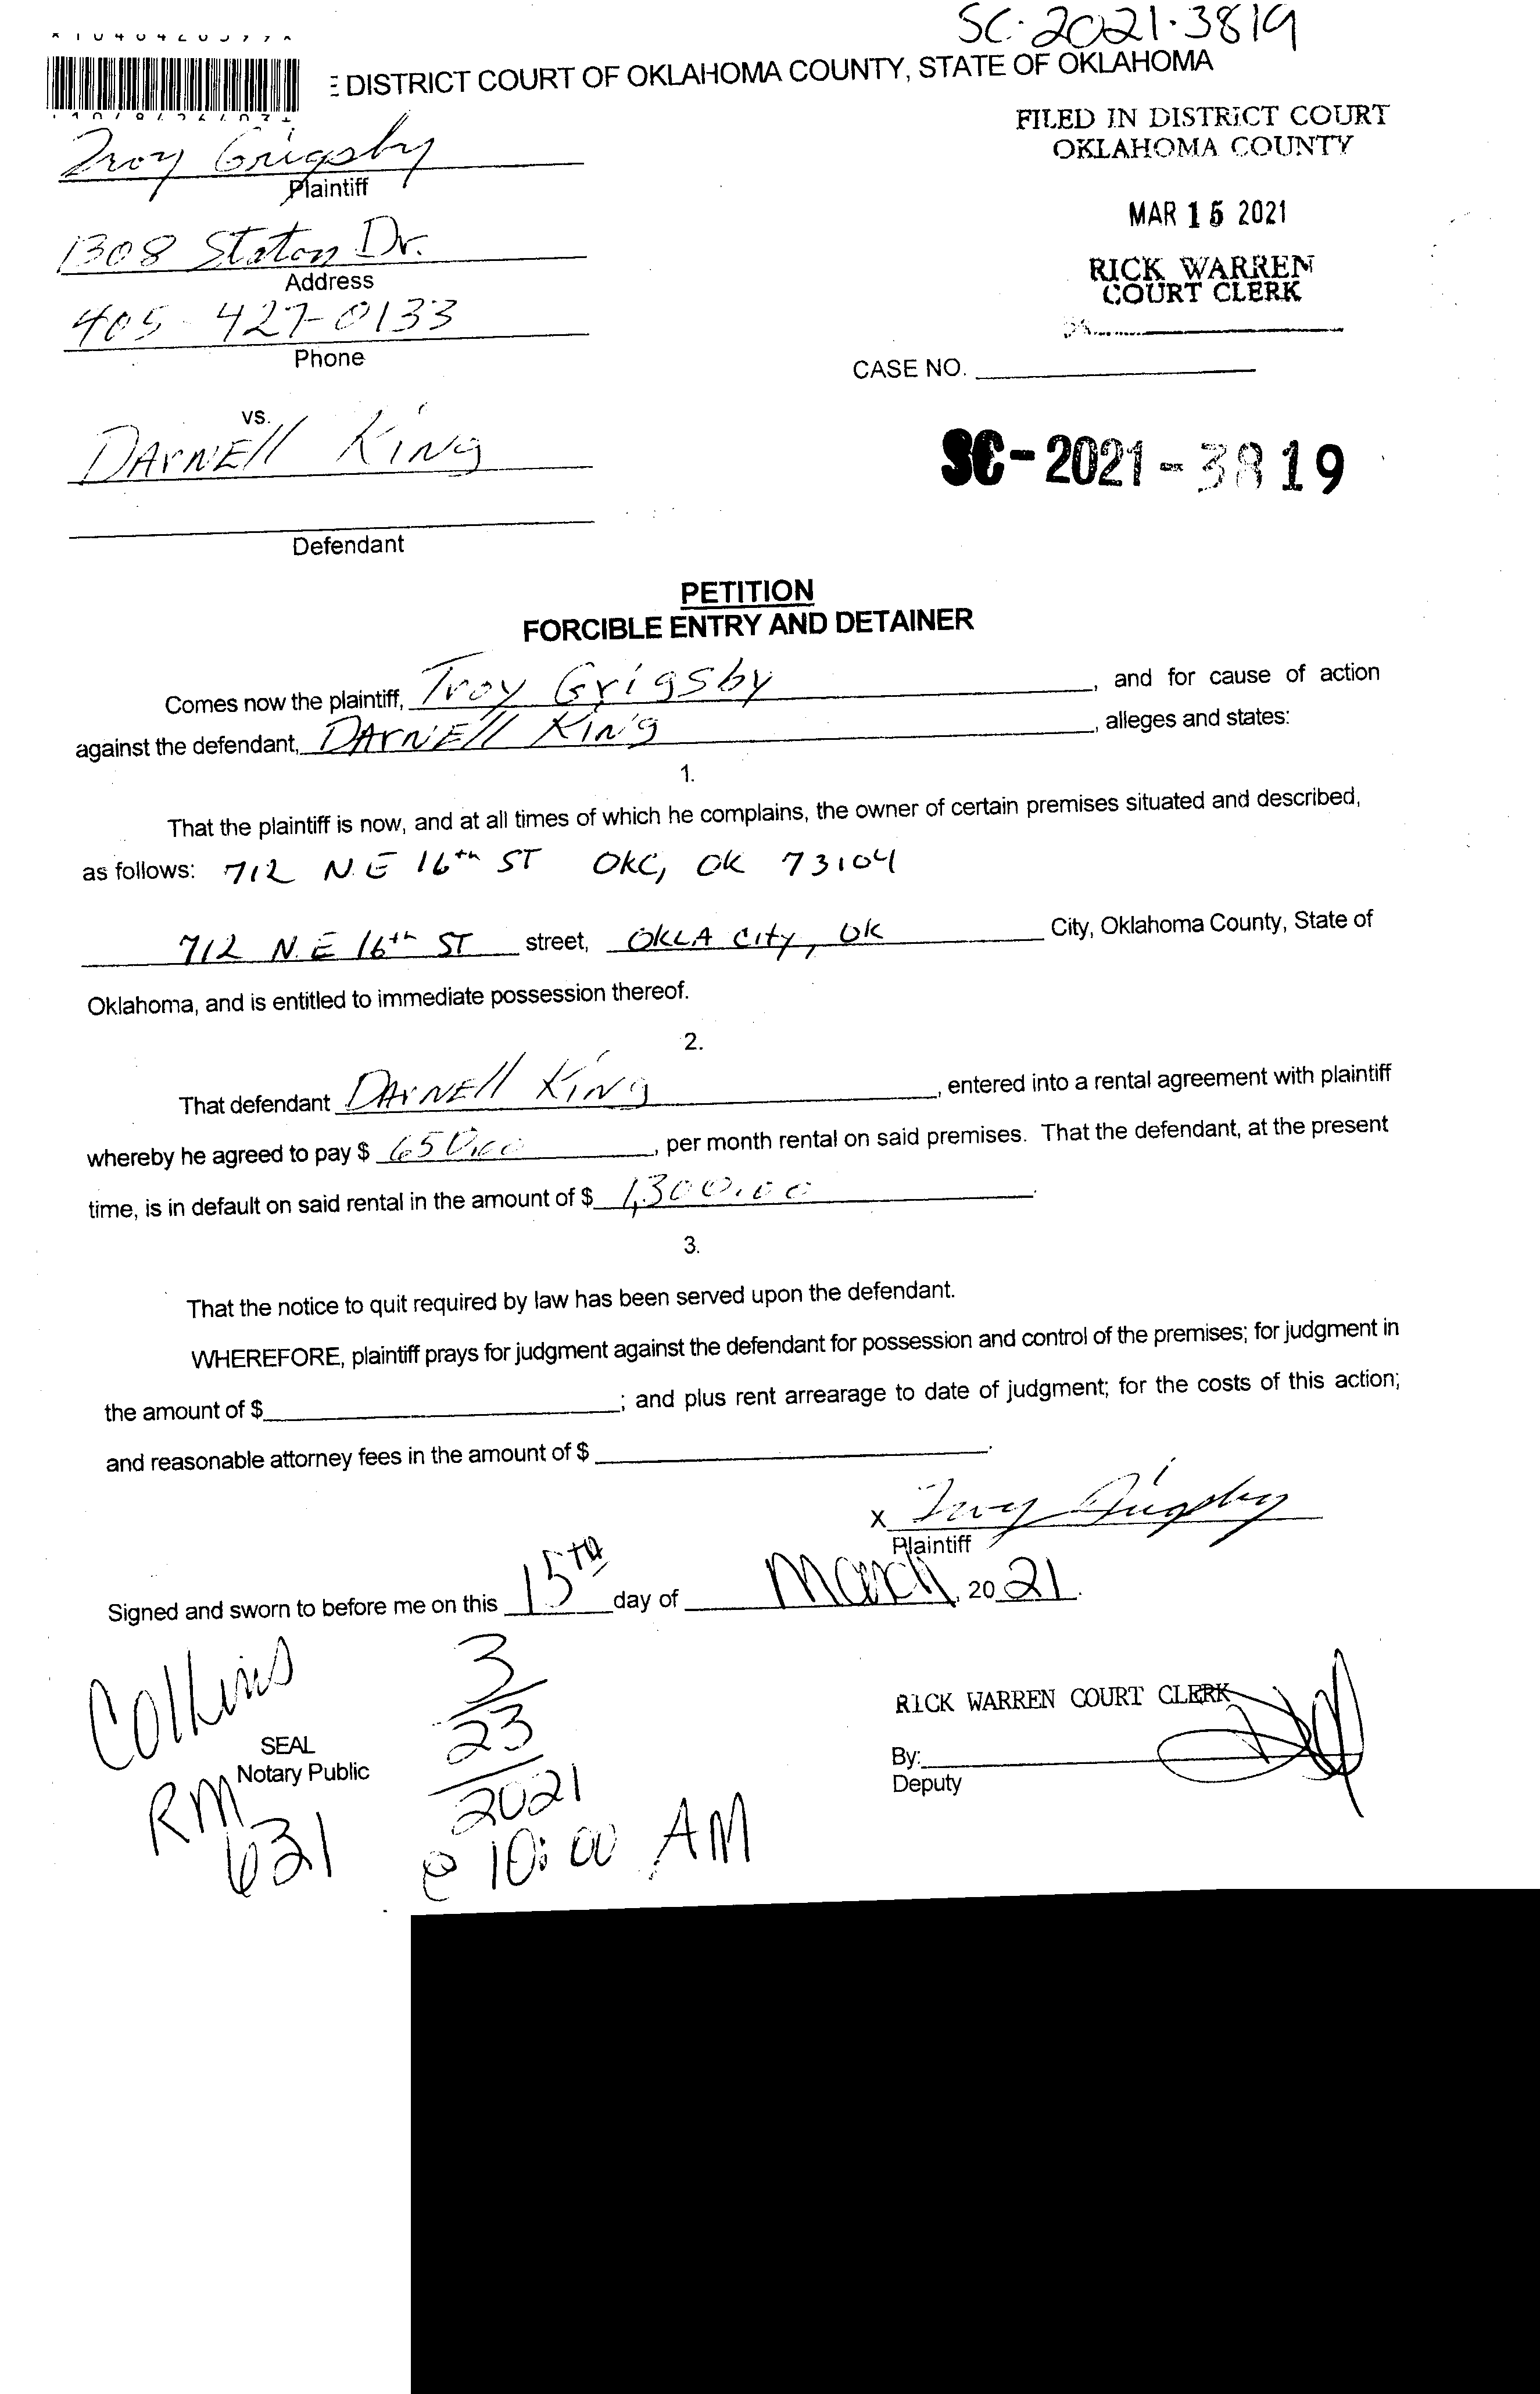 SC-2021-3819
DISTRICT COURT OF OKLAHOMA COUNTY, STATE OF OKLAHOMA
FILED IN DISTRICT COURT
OKLAHOMA COUNTY
Troy Grigsby
Plaintiff
MAR 15 2021
1308 Staton Dr.
Address
RICK WARREN
COURT CLERK
405-427-0133
Phone
CASE NO.
vs.
DArNEll KiNg
SC-2021-3819
Defendant
PETITION
FORCIBLE ENTRY AND DETAINER
Comes now the plaintiff, Troy Grigsby, and for cause of action
against the defendant, DArNEll KiNg, alleges and states:
1.
That the plaintiff is now, and at all times of which he complains, the owner of certain premises situated and described,
as follows: 712 N.E 16th ST OKC, OK 73104
712 N.E 16th ST street, OKLA City, OK City, Oklahoma County, State of
Oklahoma, and is entitled to immediate possession thereof.
2.
That defendant DArNEll KiNg, entered into a rental agreement with plaintiff
whereby he agreed to pay $ 650.00, per month rental on said premises. That the defendant, at the present
time, is in default on said rental in the amount of $ 1,300.00.
3.
That the notice to quit required by law has been served upon the defendant.
WHEREFORE, plaintiff prays for judgment against the defendant for possession and control of the premises; for judgment in
the amount of $; and plus rent arrearage to date of judgment; for the costs of this action;
and reasonable attorney fees in the amount of $.
X Troy Grigsby
Plaintiff
Signed and sworn to before me on this 15TH day of March, 2021.
Collins
3
23
2021
RICK WARREN COURT CLERK
SEAL
Notary Public
By:
Deputy
RM
631
@ 10:00 AM